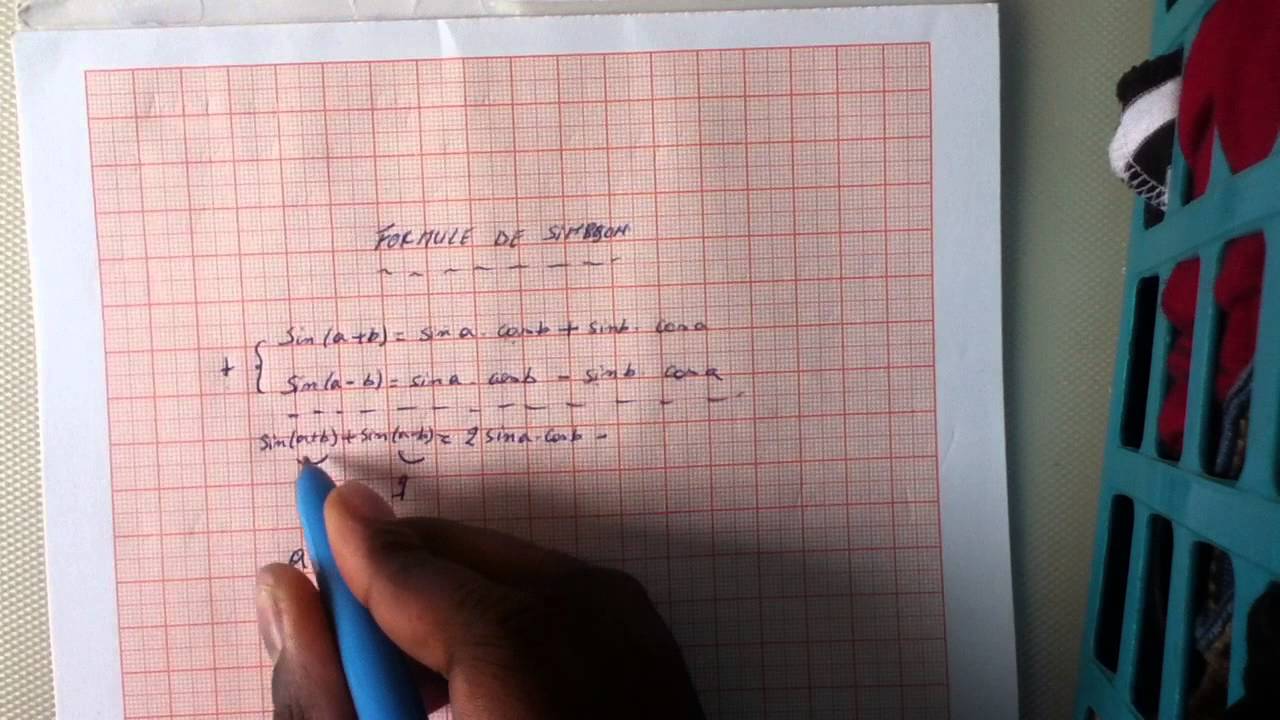 FORMULE DE SIMPSON
+ { sin(a+b) = sin a . cos b + sin b . cos a
sin(a-b) = sin a . cos b - sin b cos a
sin(a+b) + sin(a-b) = 2 sin a . cos b -
q
a